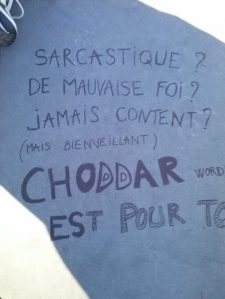 SARCASTIQUE ?
DE MAUVAISE FOI ?
JAMAIS CONTENT ?
(MAIS BIENVEILLANT)
CHODDAR WORD
EST POUR TO